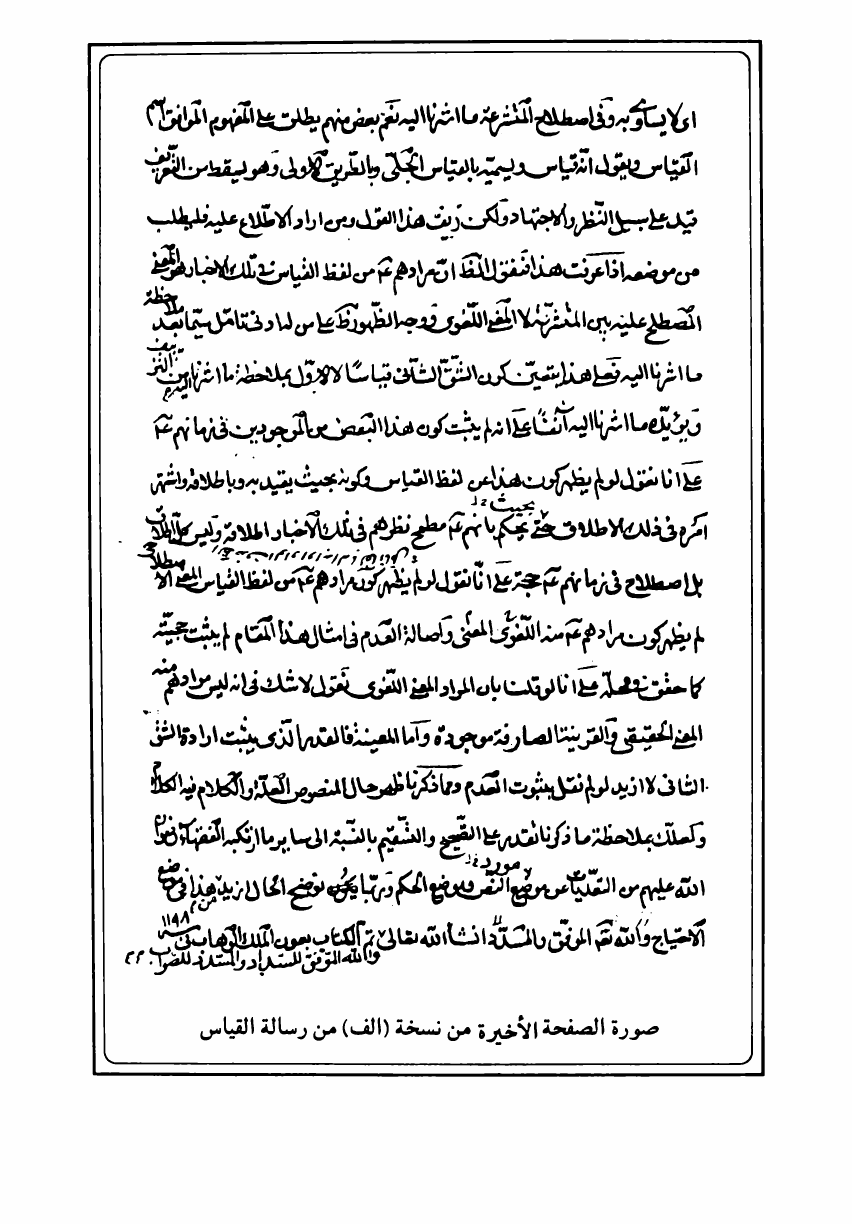 اى لا يساوى به وفى اصطلاح المتشرعة ما اشرنا اليه نعم بعض منهم يطلق على المفهوم الموافق اسم
القياس ويقول انه قياس ويسميه بالقياس الجلى وبالطريق الاولى وهو ليقط من التعريف
قيد على سبيل النظر والاجتهاد ولكن زيف هذا القول ومن اراد الاطلاع عليه فليطلب
من موضعه اذا عرفت هذا فنقول الظ ان مرادهم عم من لفظ القياس فى تلك الاخبار هو المعنى
المصطلح عليه بين المتشرعة لا المعنى اللغوى ووجه الظهور ظ على من له ادنى تامل سيما بعد ملاحظة
ما اشرنا اليه فعلى هذا يتعين كون الشق الثانى قياسًا لا الاول بملاحظة ما اشرنا اليه من
ويؤيده ما اشرنا اليه آنفًا على انه لم يثبت كون هذا البعض من الموجودين فى زمانهم عم
على انا نقول لو لم يظهر كون هذا من لفظ القياس وكونه بحيث يقيد به وباطلاقه واشتهر
امره فى ذلك الاطلاق حتى يحكم بانهم عم مطمح نظرهم فى تلك الاخبار اطلاقه وليس كل اطلاق
بل اصطلاح فى زمانهم عم حجة على انا نقول لو لم يظهر كون مرادهم عم من لفظ القياس المعنى الاصطلاحى
لم يظهر كون مرادهم عم منه اللغوى المعنى واصالة العدم فى امثال هذا المقام لم يثبت حجيته
كما حقق فى محله على انا لو قلت بان المراد المعنى اللغوى نقول لا شك فى انه ليس مرادهم منه
المعنى الحقيقى والقرينة الصارفة موجودة واما المعينة فالقدر الذى يثبت ارادة الشق
الثانى لا ازيد لو لم نقل بثبوت العدم ومما ذكرنا ظهر حال المنصوص العلة والكلام فيه الكلام
ولعلك بملاحظة ما ذكرنا تقدر على الصحيح والسقيم بالنسبة الى ساير ما ارتكبه الفقهاء رضوان
الله عليهم من التعديات عن موضع النص وموضع الحكم وربما يجئ توضيح الحال ازيد من هذا فى موضع
الاحتياج والله تعم الموفق والمسدد انشاء الله تعالى تم الكتاب بعون الملك الوهاب فى سنة ١١٩٨
والله الموفق للسداد والمسدد للصواب
صورة الصفحة الأخيرة من نسخة (الف) من رسالة القياس